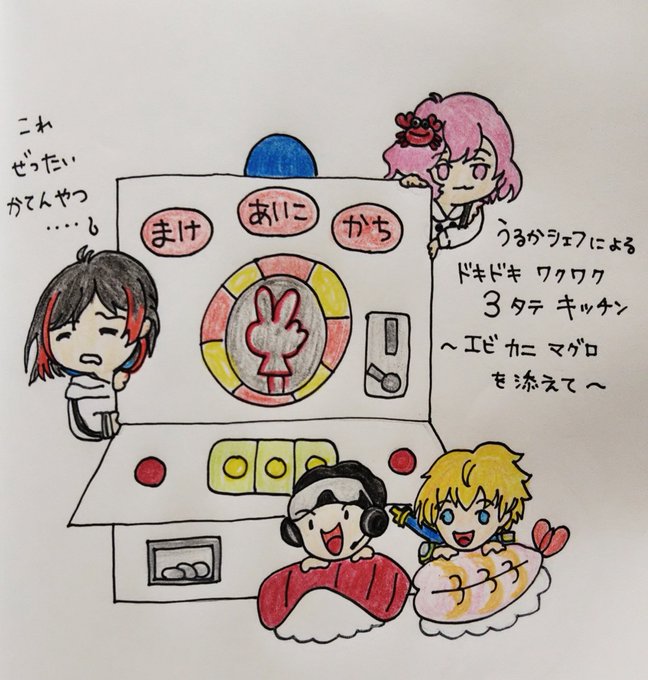 これ
ぜったい
かてんやつ
・・・・
まけ
あいこ
かち
うるかシェフによる
ドキドキ ワクワク
3タテ キッチン
～エビ カニ マグロ
を添えて～